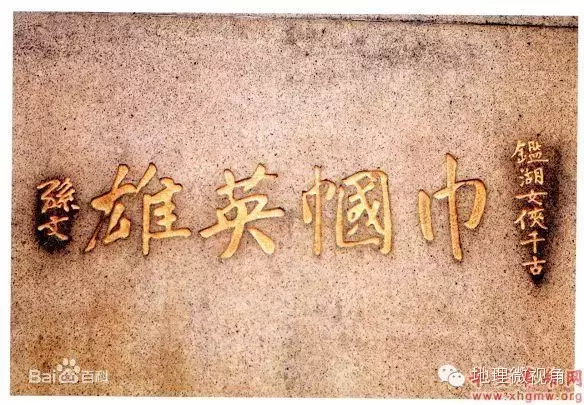 鑑湖女俠千古
巾幗英雄
孫文
Bai百科
地理微视角
网
www.xhgmw.org